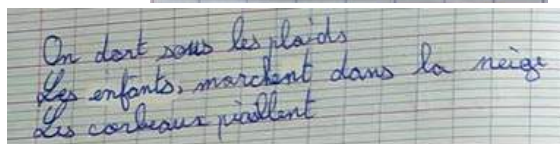 On dort sous les plaids
Les enfants, marchent dans la neige
Les corbeaux piaillent